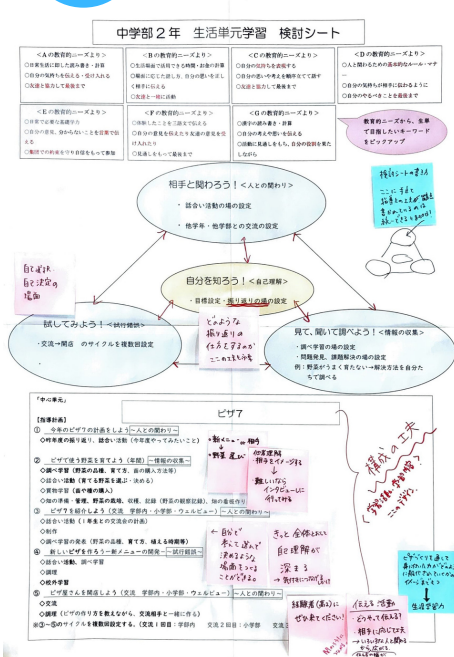 中学部２年　生活単元学習　検討シート
＜Aの教育的ニーズより＞
○日常生活に即した読み書き・計算
○自分の気持ちを伝える・受け入れる
○友達と協力して最後まで
＜Bの教育的ニーズより＞
○生活場面で活用できる時間・お金の計算
○場面に応じた話し方、自分の思いを正しく相手に伝える
○友達と一緒に活動
＜Cの教育的ニーズより＞
○自分の気持ちを表現する
○自分の思いや考えを順序立てて話す
○友達と協力して最後まで
＜Dの教育的ニーズより＞
○人と関わるための基本的なルール・マナー
○自分の気持ちが相手に伝わるように
○自分のやるべきことを最後まで
＜Eの教育的ニーズより＞
○日常で必要な基礎学力
○自分の意見、分からないことを言葉で伝える
○集団での約束を守り自信をもって参加
＜Fの教育的ニーズより＞
○体験したことを三語文で伝える
○自分の意見を伝えたり友達の意見を受け入れたり
○見通しをもって最後まで
＜Gの教育的ニーズより＞
○漢字の読み書き・計算
○自分の考えや思いを伝える
○活動に見通しをもち、自分の役割を果たしながら
教育的ニーズから、生単
で目指したいキーワード
をピックアップ
相手と関わろう！＜人との関わり＞
・話合い活動の場の設定
・他学年・他学部との交流の設定
自分を知ろう！＜自己理解＞
・目標設定・振り返りの場の設定
自己選択
自己決定の
場面
試してみよう！＜試行錯誤＞
・交流→開店　のサイクルを複数回設定
どのような
振り返りの
仕方をするのか
見て、聞いて調べよう！＜情報の収集＞
・調べ学習の場の設定
・問題発見、課題解決の場の設定
例：野菜がうまく育たない→解決方法を自分たちで調べる
「中心単元」
ピザ7
【指導計画】
①　今年のピザ7の計画をしよう～人との関わり～
◇昨年度の振り返り、話合い活動（今年度やってみたいこと）
②　ピザで使う野菜を育てよう（年間）～情報の収集～
◇調べ学習（野菜の品種、育て方、苗の購入方法等）
◇話合い活動（育てる野菜を選ぶ・決める）
◇買物学習（苗や種の購入）
◇畑の準備・管理、野菜の栽培、収穫、記録（野菜の観察記録）、畑の看板作り
③　ピザ7を紹介しよう（交流　学部内・小学部・ウェルビュー）～人との関わり～
◇話合い活動（1年生との交流会の計画）
◇制作
◇調べ学習の発表（野菜の品種、育て方、植える時期等）
④　新しいピザを作ろう－新メニューの開発－～試行錯誤～
◇話合い活動、調べ学習
◇調理
◇校外学習
⑤　ピザ屋さんを開店しよう（交流　学部内・小学部・ウェルビュー）～人との関わり～
◇交流
◇調理（ピザの作り方を教えながら、交流相手と一緒に作る）
※③～⑤のサイクルを複数回設定する。（交流1回目：学部内　交流2回目：小学部　交流
野菜選び
他者理解
相手をイメージする
難しいなら
インタビューしに
行ってみる
構成の工夫
←自分で
考えて選んで
決めるような
場面をつくる
ことができる。
きっと全体とおして
自己理解が
深まる
経験者（高2）に
ぜひ来てください！
伝える活動
・どうやって伝える？
・相手に応じて工夫
→いろいろな人と関わる
から広がる。
生活学習力